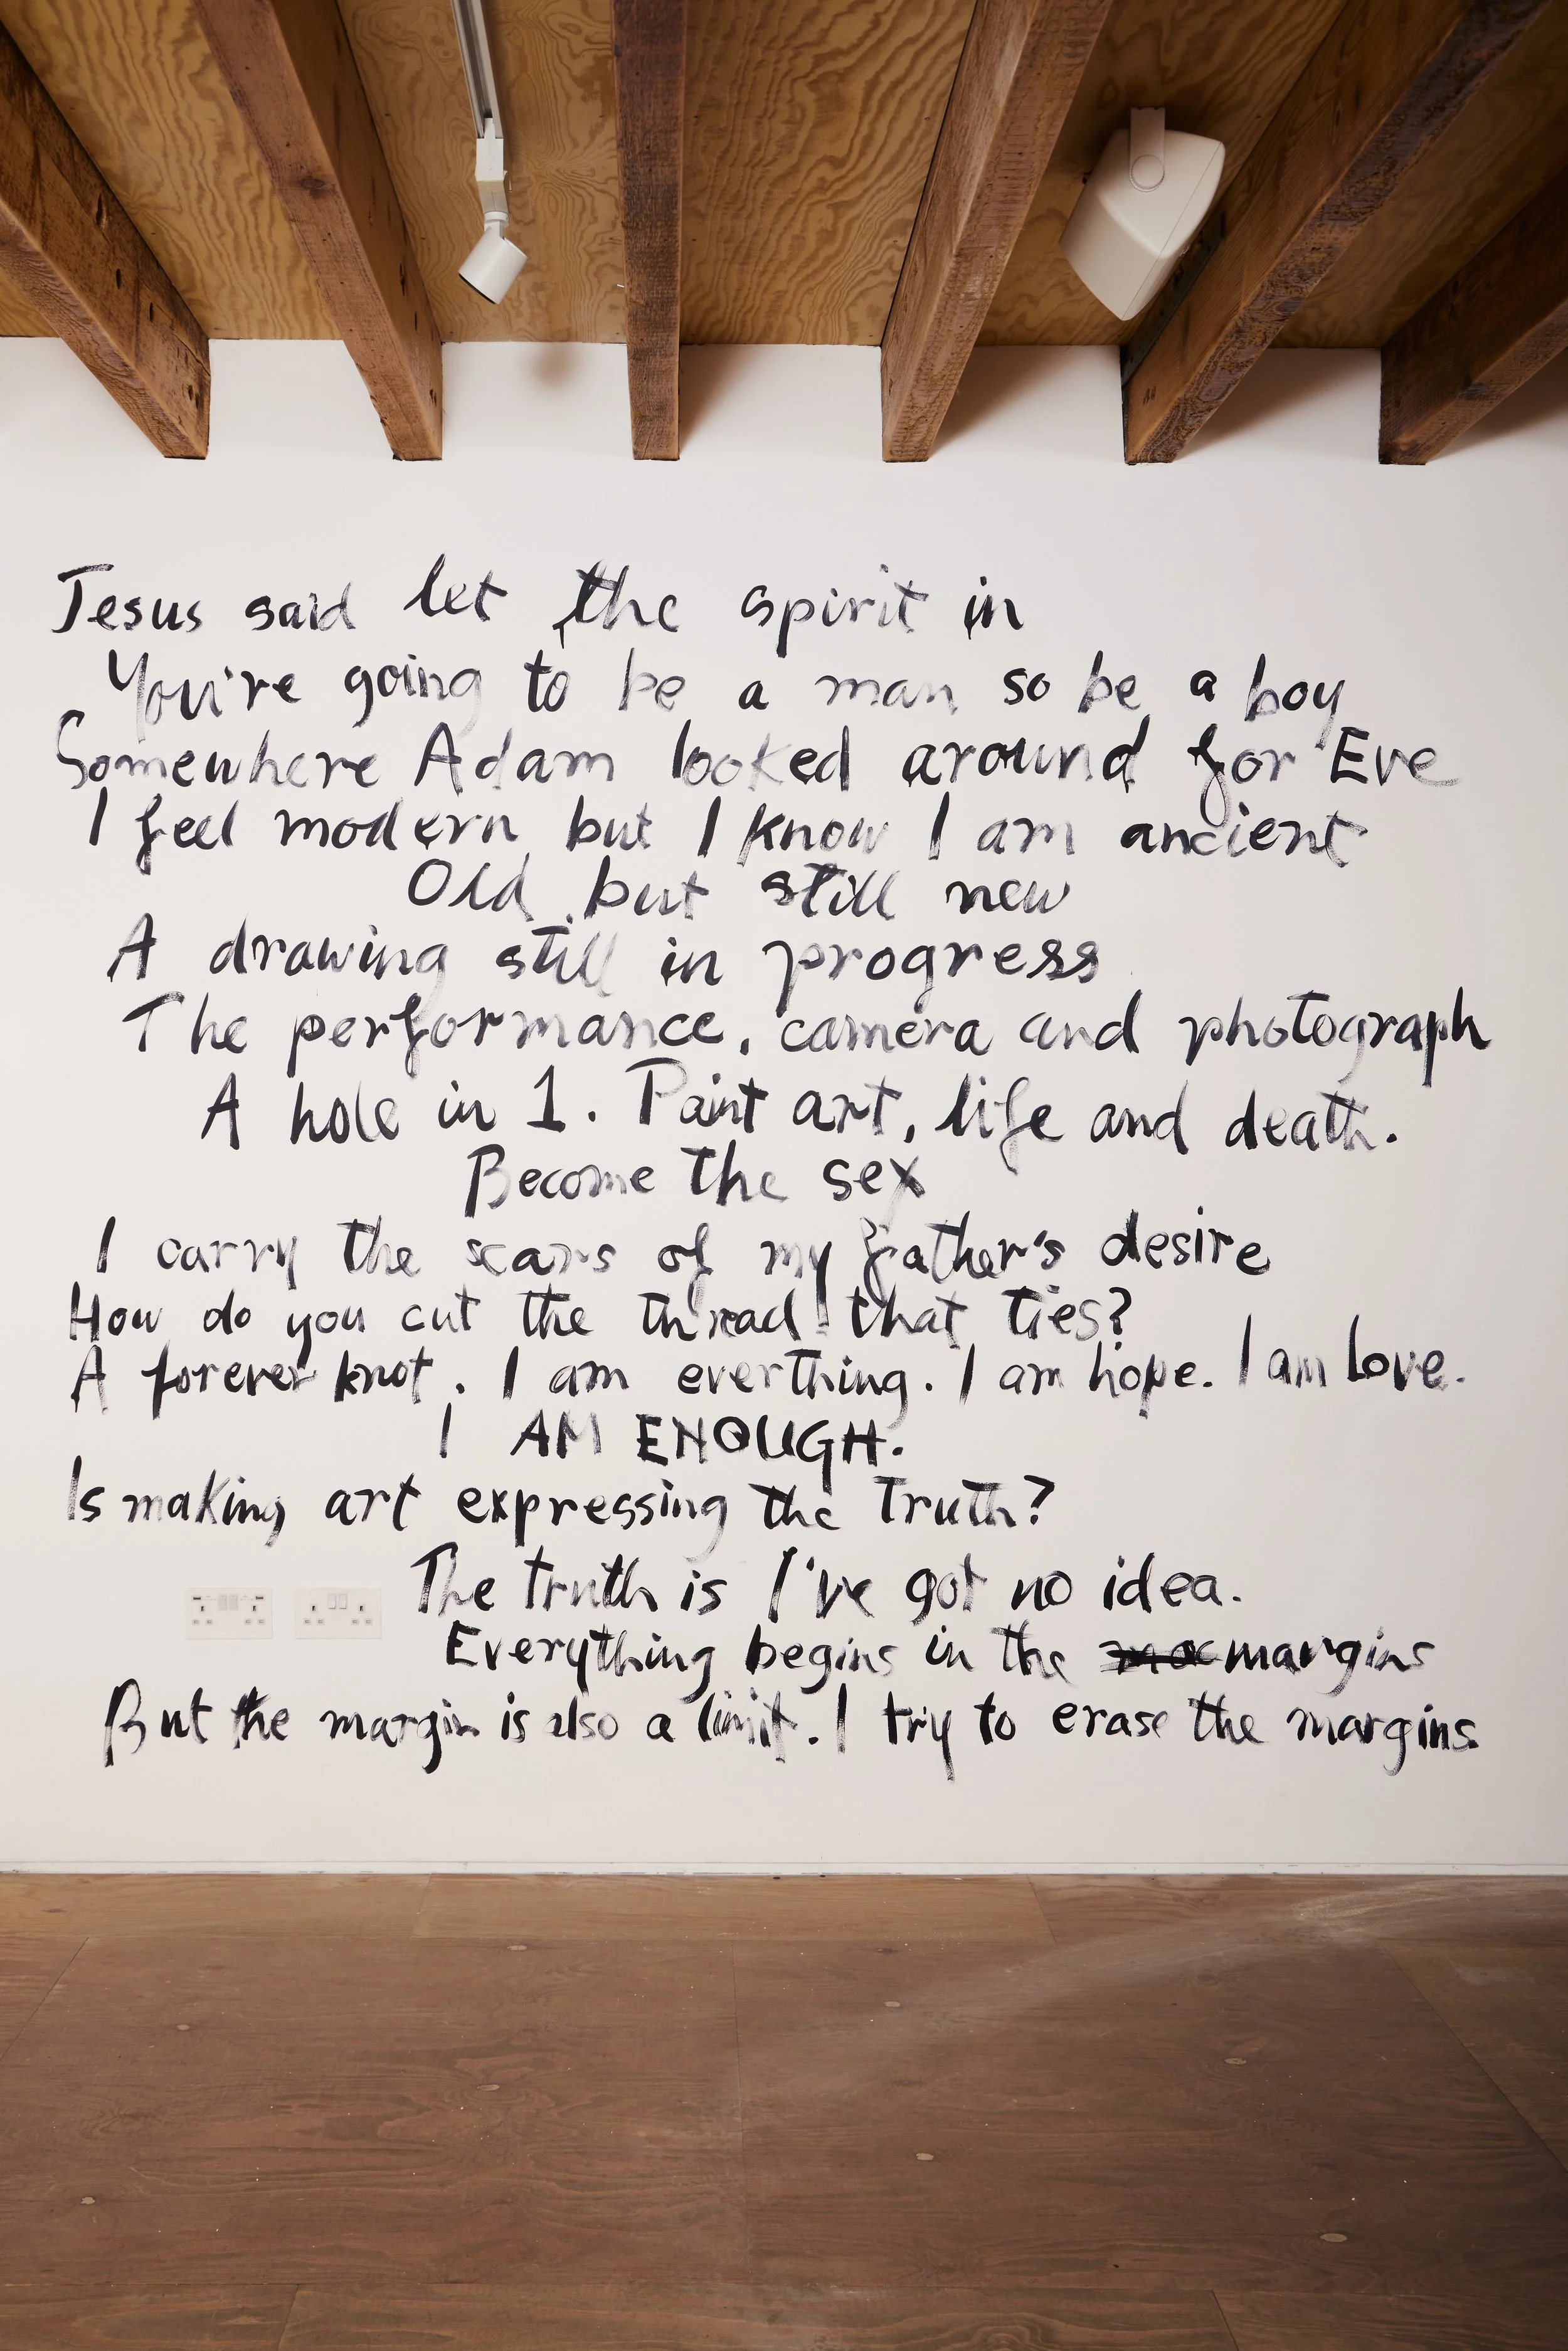 Jesus said let the spirit in
You're going to be a man so be a boy
Somewhere Adam looked around for Eve
I feel modern but I know I am ancient
Old but still new
A drawing still in progress
The performance, camera and photograph
A hole in 1. Paint art, life and death.
Become the sex
I carry the scars of my father's desire
How do you cut the thread that ties?
A forever knot. I am everthing. I am hope. I am love.
I AM ENOUGH.
Is making art expressing the Truth?
The truth is I've got no idea.
Everything begins in the margins
But the margin is also a limit. I try to erase the margins.